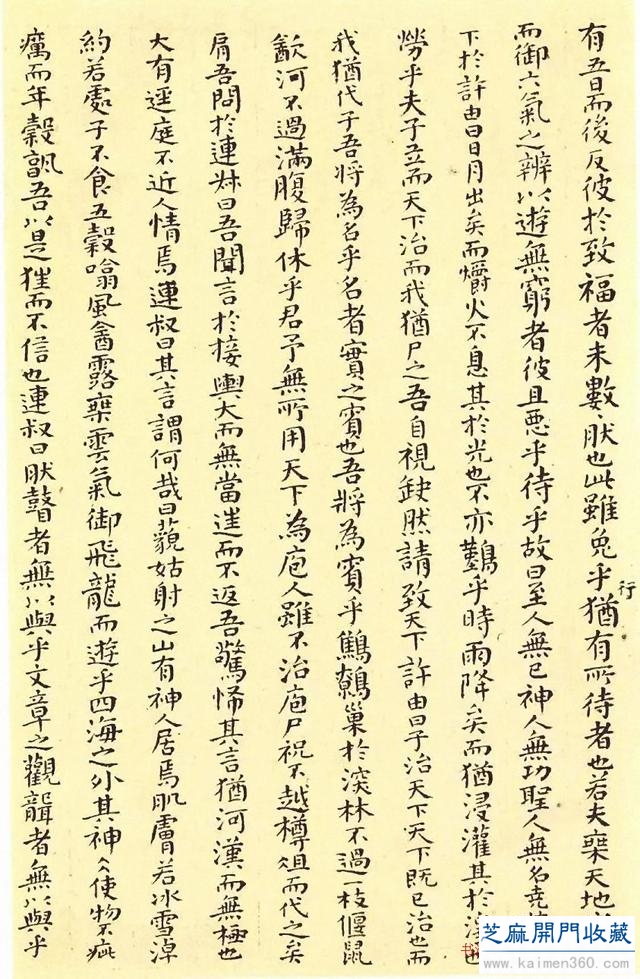 有吾日而後反彼於致福者未數〻肰也此雖免乎行猶有所待者也若夫椉天地
而御六氣之辨以遊無窮者彼且惡乎待乎故曰至人無已神人無功聖人無名堯
下於許由曰日月出矣而爝火不息其於光也不亦難乎時雨降矣而猶浸灌其於澤也
勞乎夫子立而天下治而我猶尸之吾自視缺然請致天下許由曰子治天下天下既已治也而
我猶代子吾將為名乎名者實之賓也吾將為賓乎鷦鷯巢於深林不過一枝偃鼠
歠河不過滿腹歸休乎君予無所用天下為庖人雖不治庖尸祝不越樽俎而代之矣
肩吾問於連叔曰吾聞言於接輿大而無當逞而不返吾驚怖其言猶河漢而無極也
大有逕庭不近人情焉連叔曰其言謂何哉曰藐姑射之山有神人居焉肌膚若冰雪淖
約若處子不食五穀噏風飲露椉雲氣御飛龍而遊乎四海之外其神使物不疵
癘而年穀孰吾以是狂而不信也連叔曰肰瞽者無以與乎文章之觀聾者無以與乎
芝麻開門收藏
www.kaimen360.com